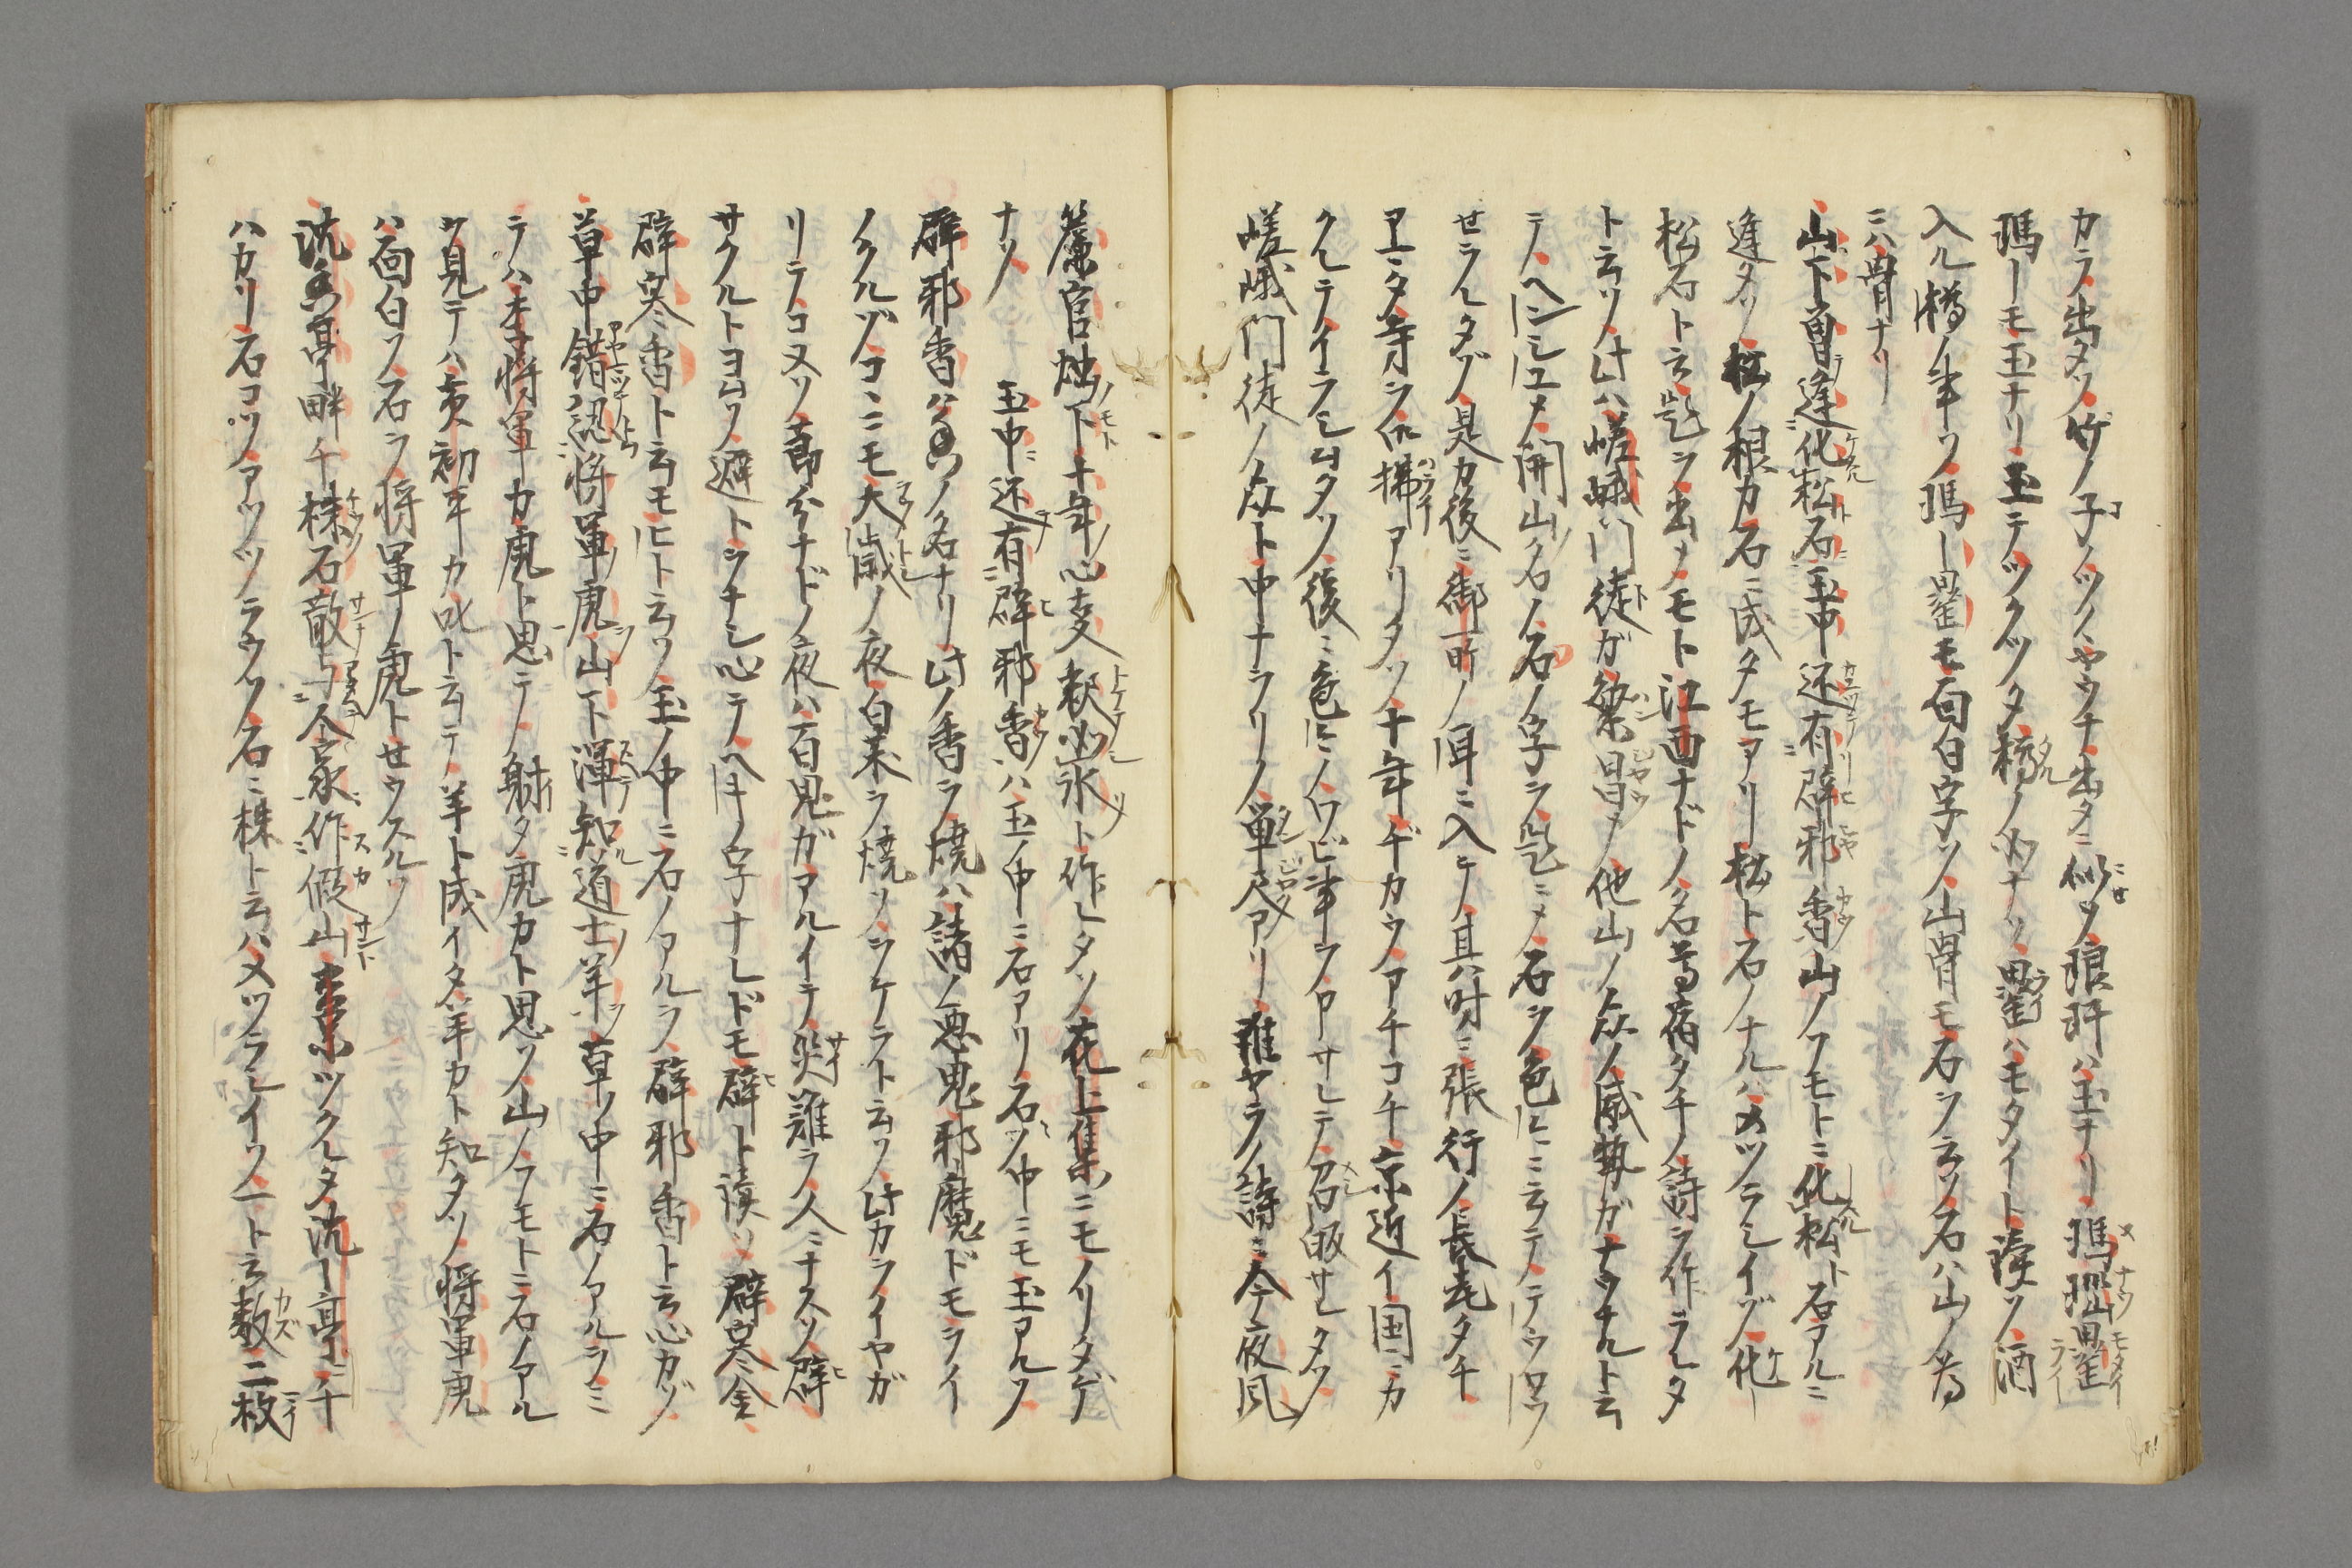 カラ出タソ竹ノ子ノツノヤウチ出タニ似ソ琅玕ハ玉ナリ瑪瑙罍
瑪ーモ玉ナリ玉テツクツタ樽ノ心ナソ罍ハモタイト讀ソ酒
入ル樽ノ事ソ瑪ー罍モ向白字ソ山骨モ石ヲ云ソ石ハ山ノ為
ニハ骨ナリ
山下曽逢化松石玉中还有辟邪香山ノフモトニ化松ト石アルニ
逢タソ松ノ根カ石ニ成タモアリ松ト石ノナルハメツラシイソ化
松石ト云題ヲ出メモト江西ナドノ名尊宿タチノ詩ヲ作ラレタ
ト云ソ此ハ嵯峨門徒ガ繁昌メ他山ノ衆ノ威勢ガナツチルト云
テノヘニシユメ開山ノ名ノ石ノ字ヲ題ニメ石ヲ色ニ云テノテウロウ
せラレタソ是カ後ニ御所ノ耳ニ入テ其ハ时ニ張行ノ長老タチ
アニタ寺ヲ仏拂アリタソ十年ギカウノアチコチ京近イ国ニカ
クレテイラシムタソ後ニ色ニノワビ事ヲ申サレテ召皈サレタソ
嵯峨門徒ノ衆ト中ナヲリノ単尺アリ誰ヤラノ詩ニ今夜風
簾官燭下十年心支釈必氷ト作レタソ花上集ニモノリタゲ
ナソ 玉中还有辟邪香ハ玉ノ中ニ石アリ石ノ中ニモ玉アルソ
辟邪香ハ香ノ名ナリ此ノ香ヲ焼ハ諸ノ悪鬼邪魔ドモライ
ノクルソコニモ大歳ノ夜白朮ヲ焼ソヲケラト云ソ此カライヤガ
リテコヌソ節分ナドノ夜ハ百鬼ガアルイテ災難ヲ人ニナスソ辟
サクルトヨムソ避トヲナシ心テノヘキノ字ナレドモ辟ト讀ソ辟寒金
辟寒香ト云モヒト云ソ玉ノ中ニ石ノアルヲ辟邪香ト云心カソ
草中錯認将軍虎山下渾知道士羊草ノ中ニ石ノアルヲミ
テハ李将軍カ虎ト思テ射タ虎カト思ソ山ノフモトニ石ノアル
ヲ見テハ黄初平カ叱ト云テ羊ト成イタ羊カト知タソ将軍虎
ハ向白ソ石ヲ将軍ノ虎トせウスルソ
沈香亭畔千株石散与人家作假山玄宗ツクレタ沈ー亭ニ千
ハカリ石コソアツツラウソ石ニ株ト云ハメツラシイソート云数二枚